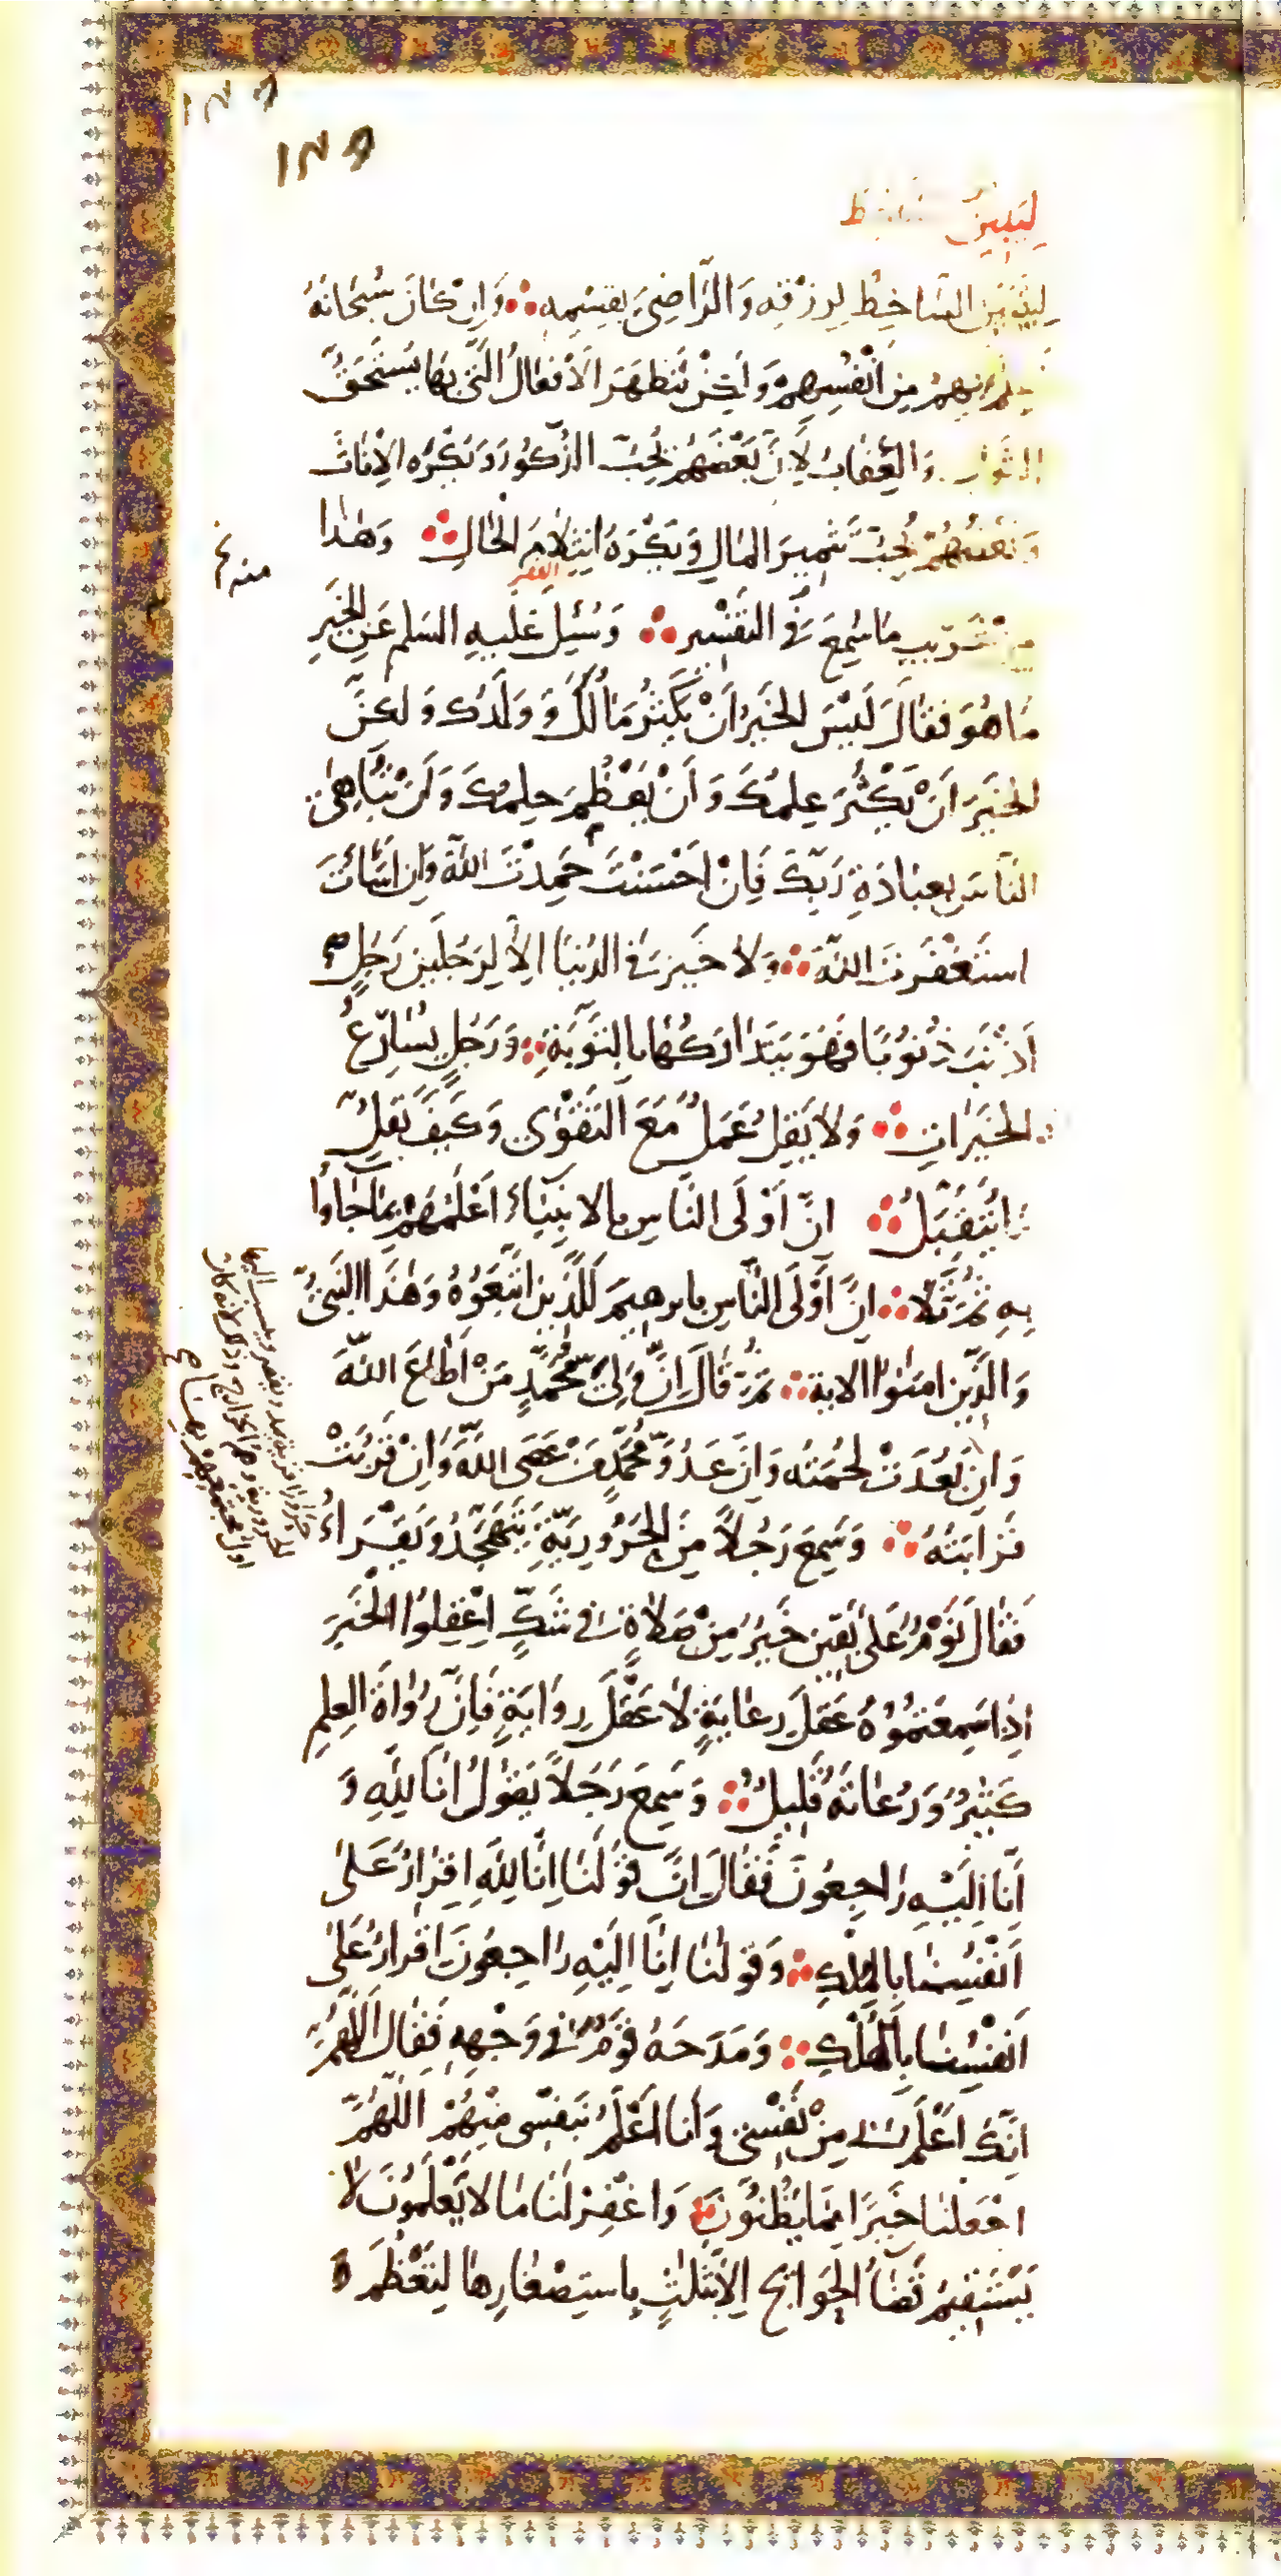 ١٣٥
١٣٥
لِيَتَبَيَّنَ السَّاخِطُ لِرِزْقِهِ وَالرَّاضِيَ بِقِسْمِهِ وَاِنْ كَانَ سُبْحَانَهُ
بِهِمْ مِنْ اَنْفُسِهِمْ وَلَكِنْ لِتَظْهَرَ الاَفْعَالُ الَّتِي بِهَا يَسْتَحَقُّ
الثَّوابُ وَالْعِقَابُ لِاَنَّ بَعْضَهُمْ يُحِبُّ الذُّكُورَ وَيَكْرَهُ الاِنَاثَ
وَبَعْضُهُمْ يُحِبُّ تَثْمِيرَ المَالِ وَيَكْرَهُ انْثِلَامَ الْحَالِ وَهٰذا
مِنْ غَرِيبِ مَا سُمِعَ فِي التَفْسِيرِ وَسُئِلَ عَلَيهِ السَلم عَنِ الخَيرِ
مَا هُوَ فَقَالَ لَيْسَ الخَيرُ اَنْ يَكْثُرَ مَالُكَ وَوَلَدُكَ وَلكِنَّ
الخَيرَ اَنْ يَكْثُرَ عِلمُكَ وَاَنْ يَعْظُمَ حِلمُكَ وَاَنْ تُبَاهِيَ
النَّاسَ بِعِبَادَةِ رَبِّكَ فَاِنْ اَحْسَنْتَ حَمِدْتَ اللهَ وَاِن اَسَأتَ
استَغْفَرتَ اللهَ وَلا خَيرَ فِي الدُنيَا اِلاَّ لِرَجُلَينِ رَجُلٍ
اَذْنَبَ ذُنُوبًا فَهُوَ يَتَدَارَكُهَا بِالتَوبَةِ وَرَجُلٍ يُسَارِعُ
الخَيرَاتِ وَلا يَقِلُّ عَمَلٌ مَعَ التَقْوٰى وَكَيفَ يَقِلُّ
مَا يُتَقَبَّلُ اِنَّ اَوْلَى النَّاسِ بِالانبِيَاءِ اَعْلَمُهُمْ بِمَا جَاؤُا
بِهِ ثُمَّ تَلا اِنَّ اَوْلَى النَّاسِ بِابرهِيمَ لَلَّذِينَ اتَّبَعُوهُ وَهٰذَا النَبِيُّ
وَالَّذِينَ امَنُوا الاية ثُمَّ قَالَ اِنَّ وَلِيَّ مُحَمَّدٍ مَنْ اَطَاعَ اللهَ
وَاِن بَعُدَتْ لُحْمَتُه وَاِنَّ عَدُوَّ مُحَمَّدٍ مَنْ عَصَى اللهَ وَاِنْ قَرُبَتْ
قَرَابَتُهُ وَسَمِعَ رَجُلاً مِنَ الحَرُورِيَّةِ يَتَهَجَّدُ وَيَقْرَاءُ
فَقَالَ نَوْمٌ عَلٰى يَقِينٍ خَيرٌ مِنْ صَلاةٍ فِي شَكٍّ اِعْقِلُوا الْخَبَرَ
اِذَا سَمِعْتُمُوهُ عَقلَ رِعَايَةٍ لا عَقْلَ رِوَايَةٍ فَاِنَّ رُوَاةَ العِلمِ
كَثِيرٌ وَرُعَاتَهُ قَلِيلٌ وَسَمِعَ رَجُلاً يَقُولُ اِنَا لِلّٰهِ وَ
اِنَّا اِلَيْهِ رَاجِعُونَ فَقَالَ اِنَّ قَولَنَا اِنَّا لِلّٰهِ اِقرَارٌ عَلٰى
اَنْفُسِنَا بِالمُلكِ وَقَولنَا اِنَّا اِلَيْهِ رَاجِعُونَ اِقرَارٌ عَلٰى
اَنفُسِنَا بِالْهُلْكِ وَمَدَحَهُ قَومٌ فِي وَجْهِهِ فَقَالَ اللّٰهُمَّ
اِنَّكَ اَعْلَمُ بِي مِنْ نَفْسِي وَاَنا اَعْلَمُ بِنَفسِي مِنْهُمْ اللّٰهُمَّ
اجْعَلنَا خَيرًا مِمَّا يَظُنُّونَ وَاغفِرْ لَنَا مَا لا يَعْلَمُونَ لا
يَسْتَقِيمُ قَضَاءُ الحَوَائجِ اِلاَّ بِثَلٰثٍ بِاستِصْغَارِهَا لِتَعْظُمَ وَ